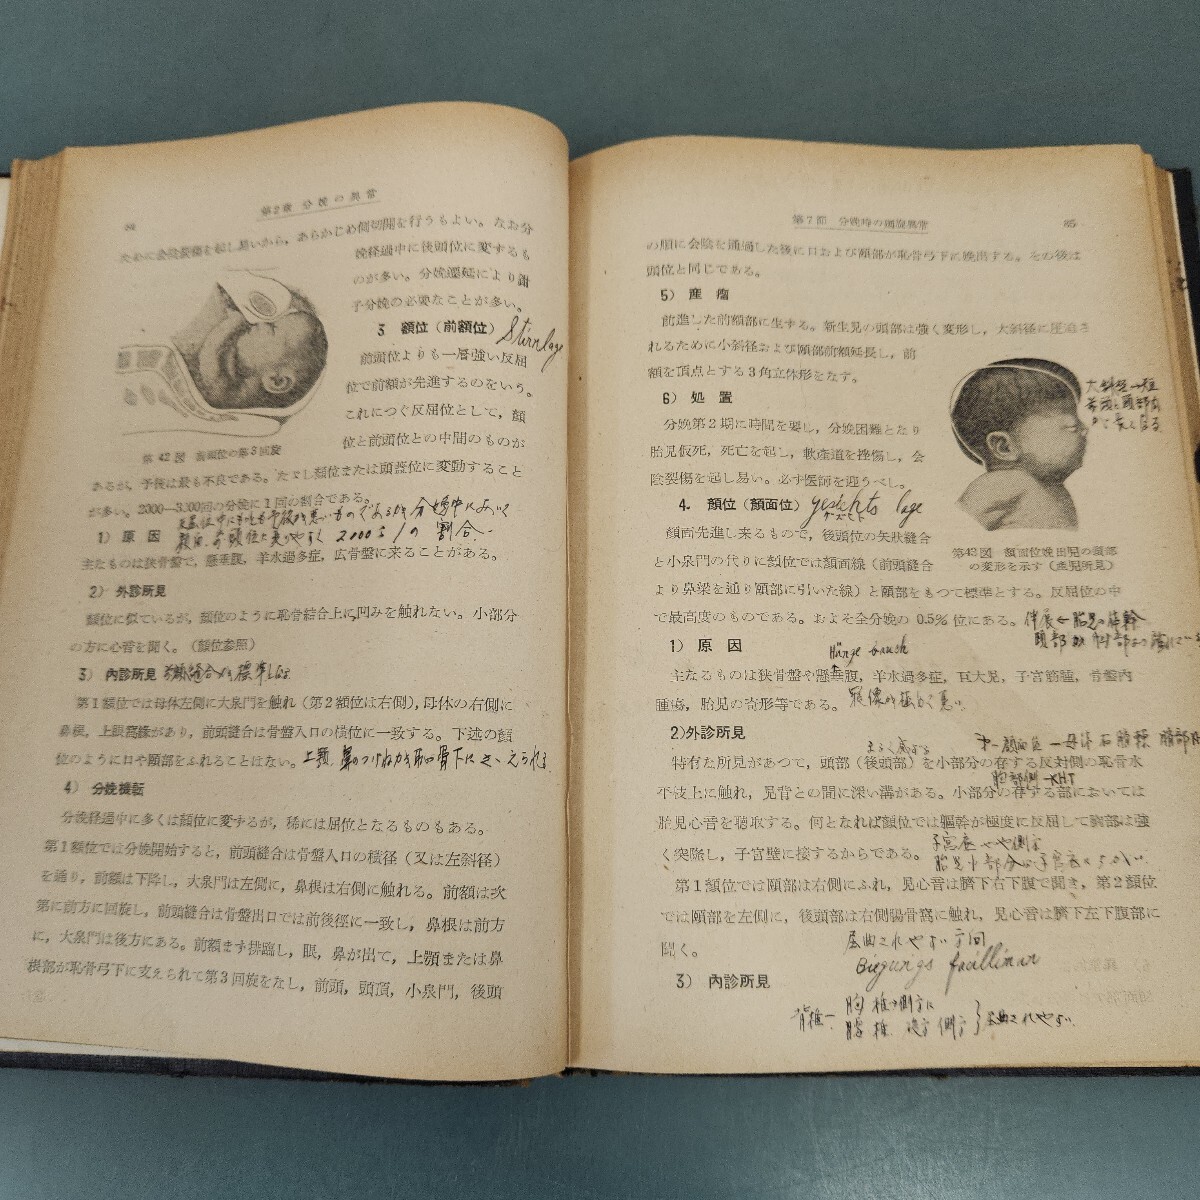 84
第2章 分娩の異常
ために会陰裂傷を起し易いから，あらかじめ側切開を行うもよい。なお分
娩経過中に後頭位に変するも
のが多い。分娩遷延により鉗
子分娩の必要なことが多い。
3 額位（前額位） Stirnlage
前頭位よりも一層強い反屈
位で前額が先進するのをいう。
これにつぐ反屈位として，顔
位と前頭位との中間のものが
第42図 前頭位の第3回旋
あるが，予後は最も不良である。たゞし顔位または頭蓋位に変動すること
が多い。2000—3000回の分娩に1回の割合である。
2000に1の割合
1） 原 因
主なものは狭骨盤で，懸垂腹，羊水過多症，広骨盤に来ることがある。
2） 外診所見
顔位に似ているが，顔位のように恥骨結合上に凹みを触れない。小部分
の方に心音を聞く。（顔位参照）
3） 内診所見
第1額位では母体左側に大泉門を触れ（第2額位は右側），母体の右側に
鼻根，上眼窩縁があり，前頭縫合は骨盤入口の横位に一致する。下述の顔
位のように口や頤部をふれることはない。
4） 分娩機転
分娩経過中に多くは顔位に変するが，稀には屈位となるものもある。
第1額位では分娩開始すると，前頭縫合は骨盤入口の横径（又は左斜径）
を通り，前額は下降し，大泉門は左側に，鼻根は右側に触れる。前額は次
第に前方に回旋し，前頭縫合は骨盤出口では前後徑に一致し，鼻根は前方
に，大泉門は後方にある。前額まず排臨し，眼，鼻が出て，上顎または鼻
根部が恥骨弓下に支えられて第3回旋をなし，前頭，頭頂，小泉門，後頭
第7節 分娩時の頭旋異常
85
の順に会陰を通過した後に口および頤部が恥骨弓下に娩出する。その後は
頭位と同じである。
5） 産 瘤
前進した前額部に生する。新生児の頭部は強く変形し，大斜径に圧迫さ
れるために小斜径および頤部前額延長し，前
額を頂点とする3角立体形をなす。
6） 処 置
分娩第2期に時間を要し，分娩困難となり
胎児仮死，死亡を起し，軟産道を挫傷し，会
陰裂傷を起し易い。必ず医師を迎うべし。
4. 顔位（顔面位） gesichts lage
顔面先進し来るもので，後頭位の矢状縫合
と小泉門の代りに顔位では顔面線（前頭縫合
第43図 顔面位娩出児の頭部
の変形を示す（産児所見）
より鼻梁を通り頤部に引いた線）と頤部をもつて標準とする。反屈位の中
で最高度のものである。およそ全分娩の 0.5% 位にある。
1） 原 因
主なるものは狭骨盤や懸垂腹，羊水過多症，巨大児，子宮筋腫，骨盤内
腫瘍，胎児の奇形等である。
2)外診所見
特有な所見があつて，頭部（後頭部）を小部分の存する反対側の恥骨水
平枝上に触れ，児背との間に深い溝がある。小部分の存する部においては
胎児心音を聴取する。何となれば顔位では軀幹が極度に反屈して胸部は強
く突隆し，子宮壁に接するからである。
第1顔位では頤部は右側にふれ，児心音は臍下右下腹で聞き，第2顔位
では頤部を左側に，後頭部は右側腸骨窩に触れ，児心音は臍下左下腹部に
聞く。
屈曲されやすい方向
3） 内診所見
屈曲されやすい